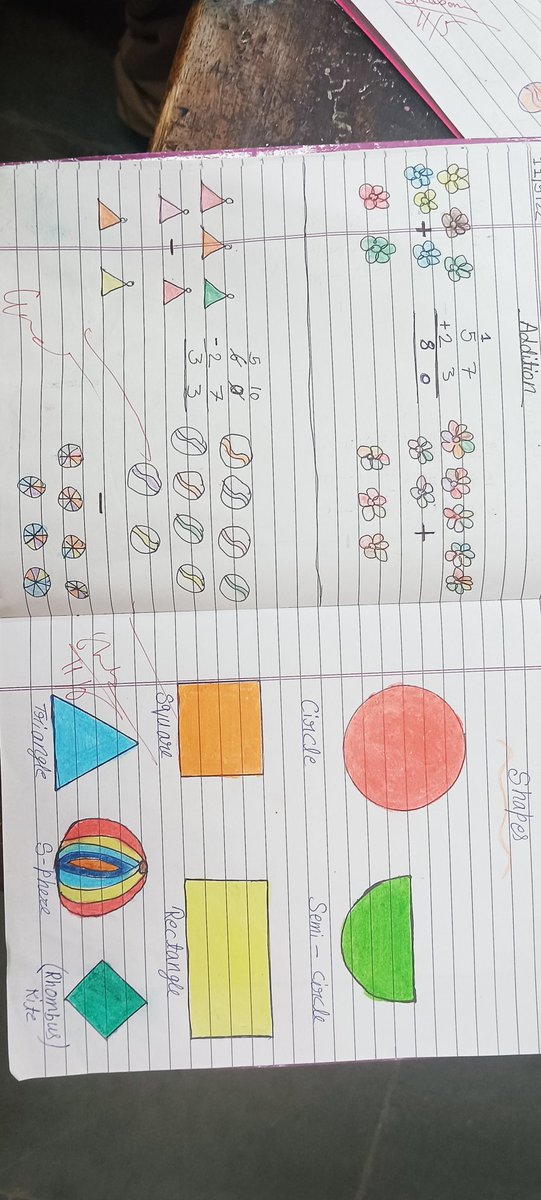 Addition
1
5 7
+2 3
8 0
5 10
6 0
-2 7
3 3
Shapes
Circle
Semi-circle
Square
Rectangle
Triangle
S-phere
(Rhombus)
Kite